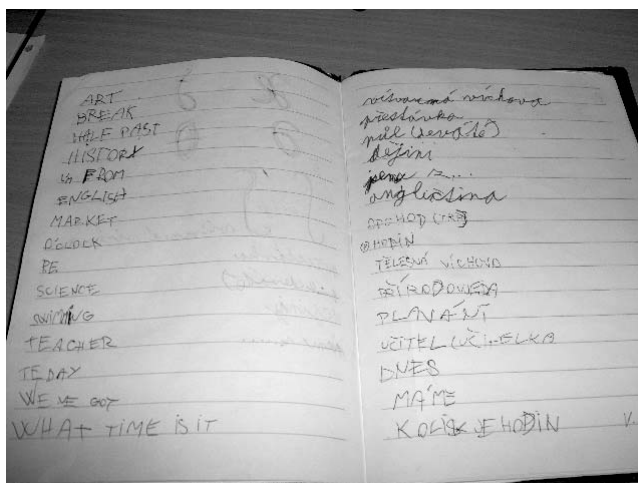 ART
BREAK
HALF PAST
HISTORY
FROM
ENGLISH
MARKET
O'CLOCK
PE
SCIENCE
SWIMING
TEACHER
TEDAY
WE VE GOT
WHAT TIME IS IT
vítvarná víchova
přestávka
půl (deváté)
dějini
angličtina
HODIN
TĚLESNÁ VÍCHOVA
PŘÍRODOVĚDA
PLAVÁNÍ
UČITEL
DNES
MÁME
KOLIK JE HODIN